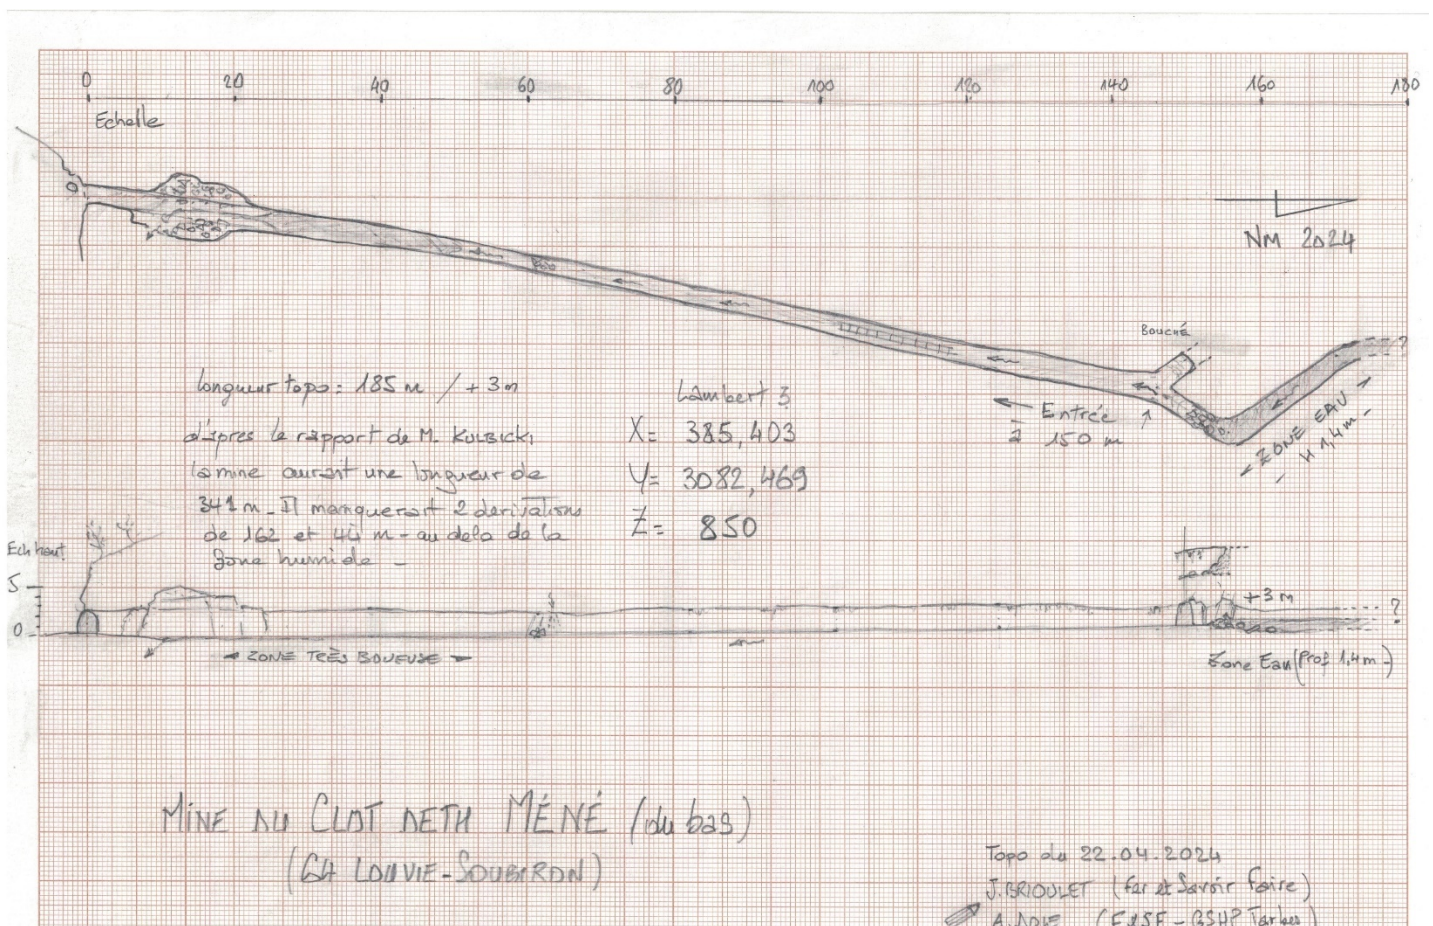 0 20 40 60 80 100 120 140 160 180
Echelle
NM 2024
Bouché
?
Longueur topo: 185 m / + 3m
d'apres le rapport de M. KULBICKI
la mine aurait une longueur de
341 m - Il manquerait 2 derivations
de 162 et 44 m - au dela de la
zone humide -
Lambert 3
X= 385,403
Y= 3082,469
Z= 850
Entrée
à 150 m
ZONE EAU
- H 1,4m -
Ech haut.
5
0
+3 m
?
ZONE TRÈS BOUEUSE
Zone Eau (Prof 1,4m -)
MINE DU CLOT DETH MÉNÉ (du bas)
(64 LOUVIE-SOUBIRON)
Topo du 22.04.2024
J. BRIOULET (Fer et Savoir Faire)
A. (EASE - GSHP Tarbes)